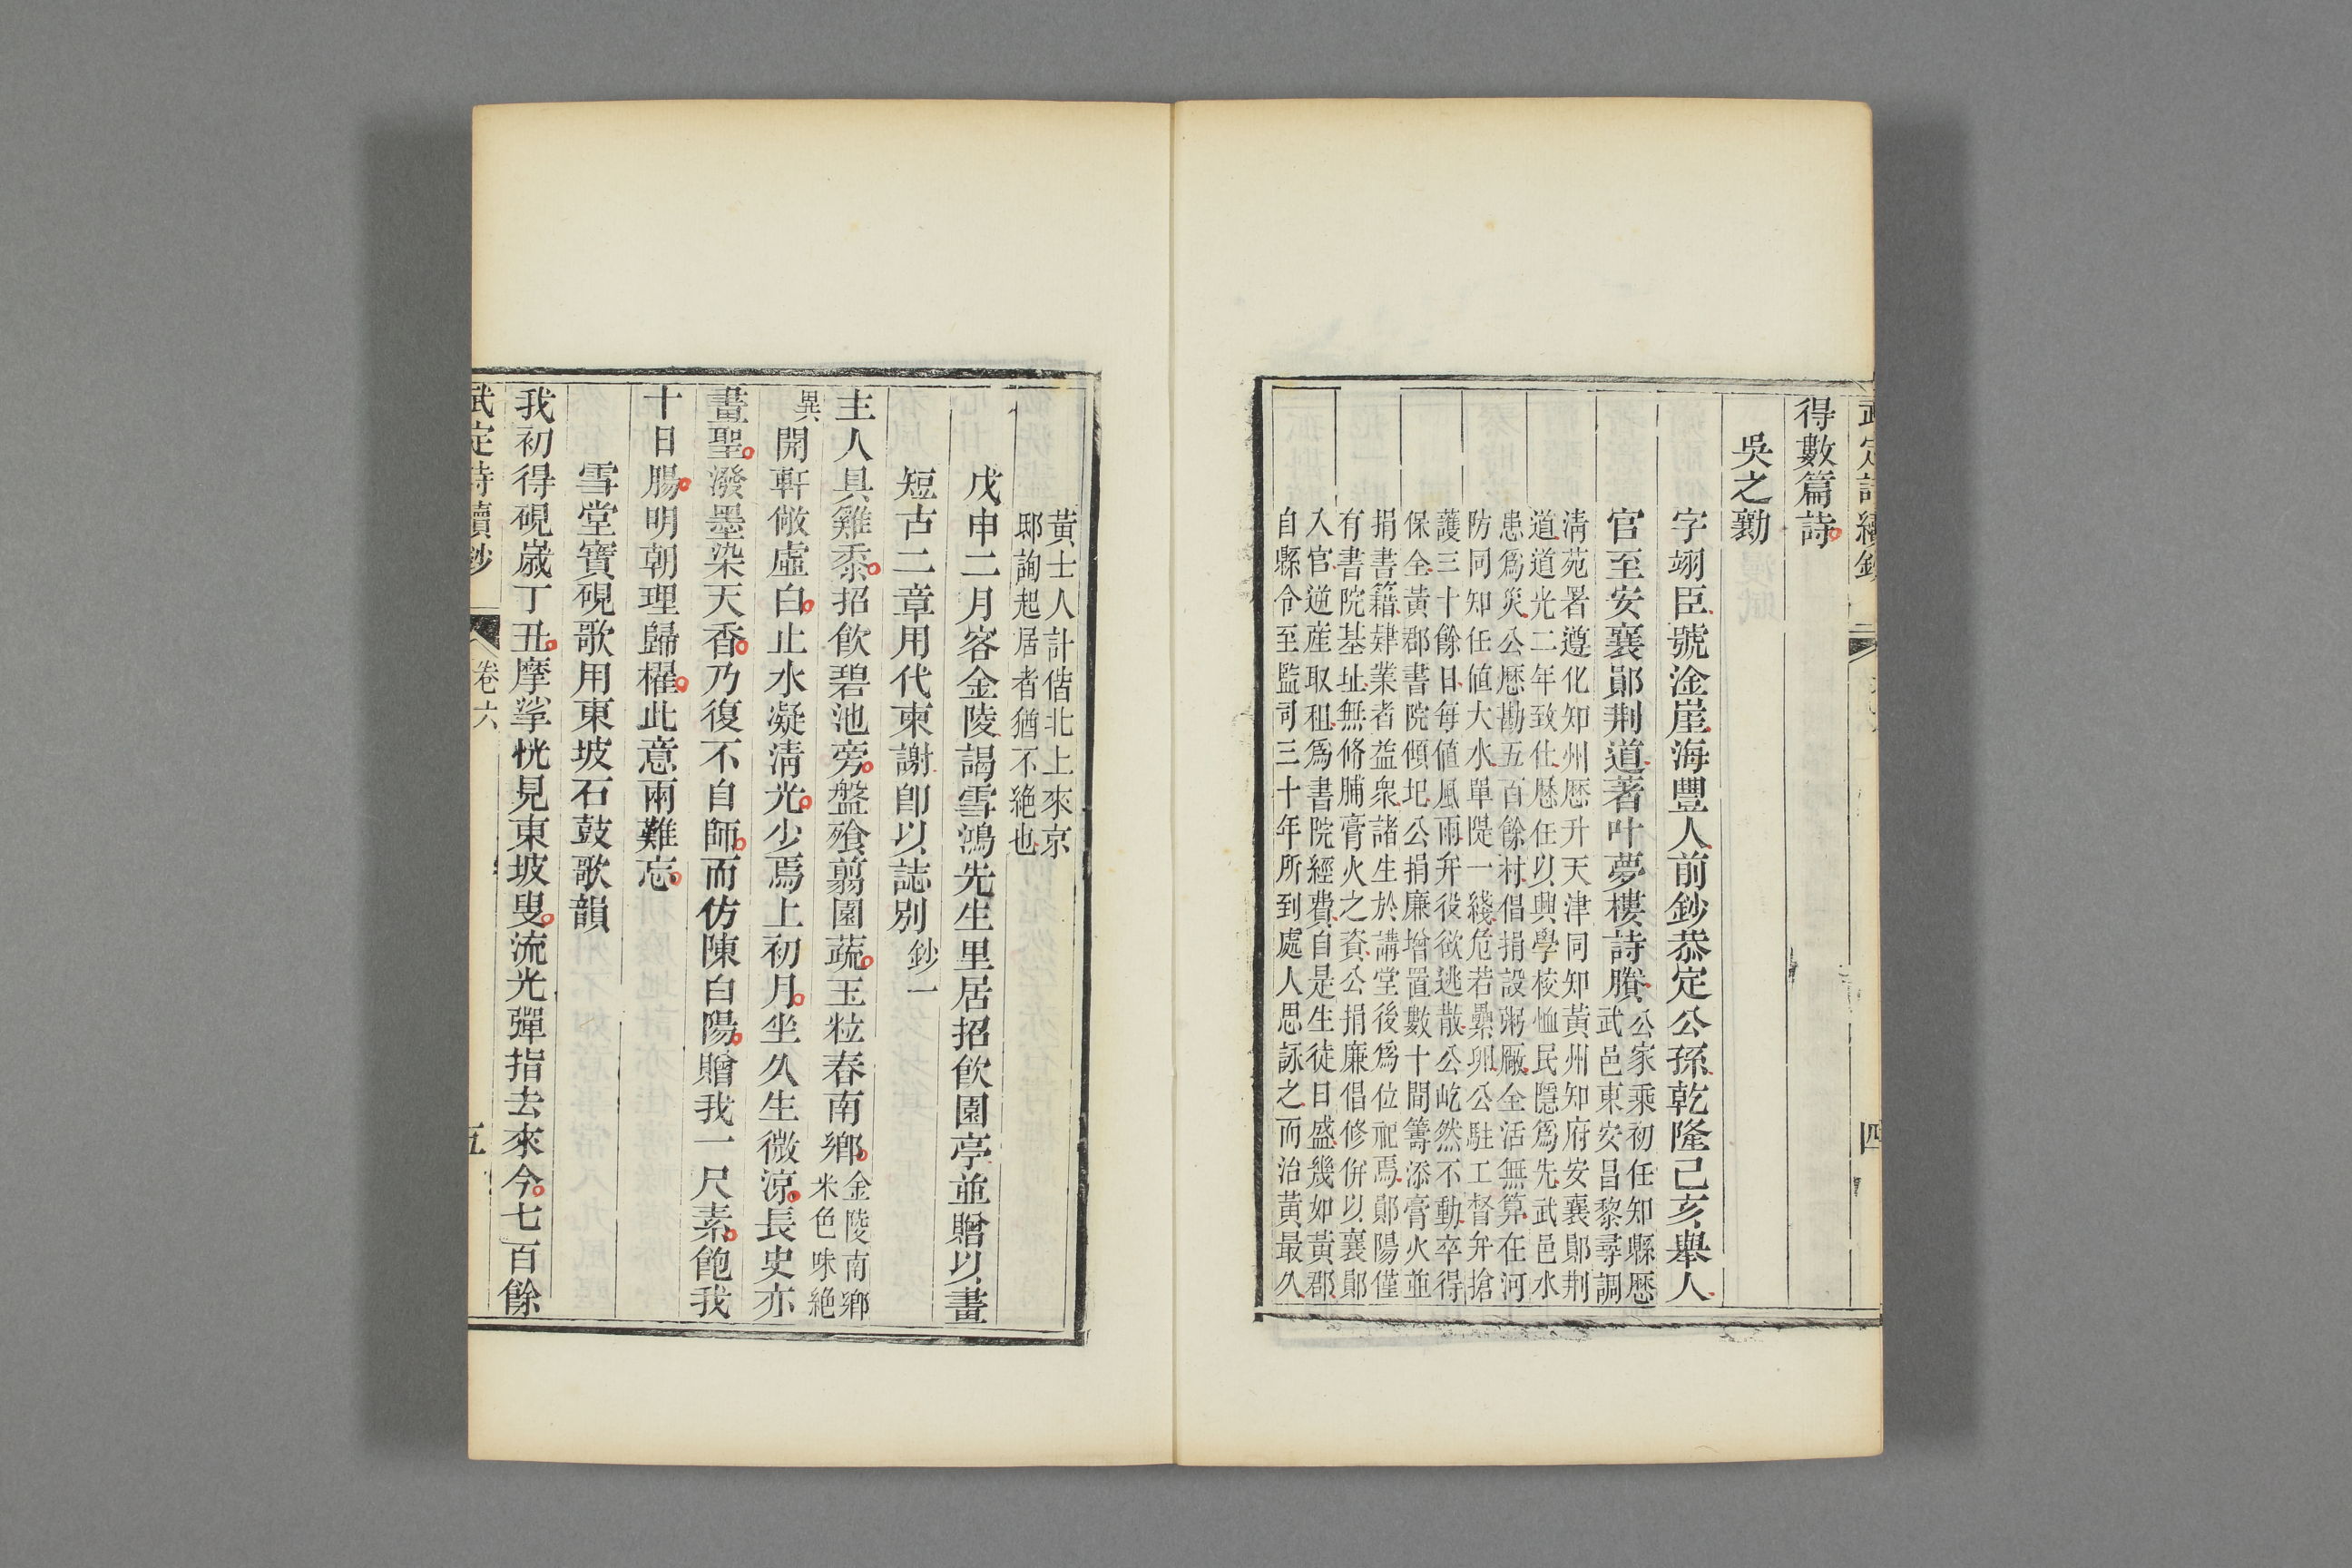 武定詩續鈔
四
得數篇詩
吳之勷
字翊臣號淦崖海豐人前鈔恭定公孫乾隆己亥舉人
官至安襄鄖荆道著叶夢樓詩賸
公家乘初任知縣歷
武邑東安昌黎尋調
清苑署遵化知州歷升天津同知黃州知府安襄鄖荆
道道光二年致仕歷任以興學校恤民隱爲先武邑水
患爲災公歷勘五百餘村倡捐設粥厰全活無算在河
防同知任値大水單隄一綫危若纍卵公駐工督弁搶
護三十餘日每値風雨弁役欲逃散公屹然不動卒得
保全黃郡書院傾圮公捐廉增置數十間籌添膏火並
捐書籍肄業者益衆諸生於講堂後爲位祀焉鄖陽僅
有書院基址無脩脯膏火之資公捐廉倡修併以襄鄖
入官逆産取租爲書院經費自是生徒日盛幾如黃郡
自縣令至監司三十年所到處人思詠之而治黃最久
黃士人計偕北上來京
邸詢起居者猶不絶也
戊申二月客金陵謁雪鴻先生里居招飮園亭並贈以畫
短古二章用代柬謝卽以誌別
鈔一
主人具雞黍招飮碧池旁盤飱翦園蔬玉粒春南鄉
金陵南鄉
米色味絶
異
開軒俯虛白止水凝淸光少焉上初月坐久生微涼長史亦
畫聖潑墨染天香乃復不自師而仿陳白陽贈我一尺素飽我
十日腸明朝理歸櫂此意兩難忘
雪堂寶硯歌用東坡石鼓歌韻
我初得硯歲丁丑摩挲恍見東坡叟流光彈指去來今七百餘
武定詩續鈔
卷六
五